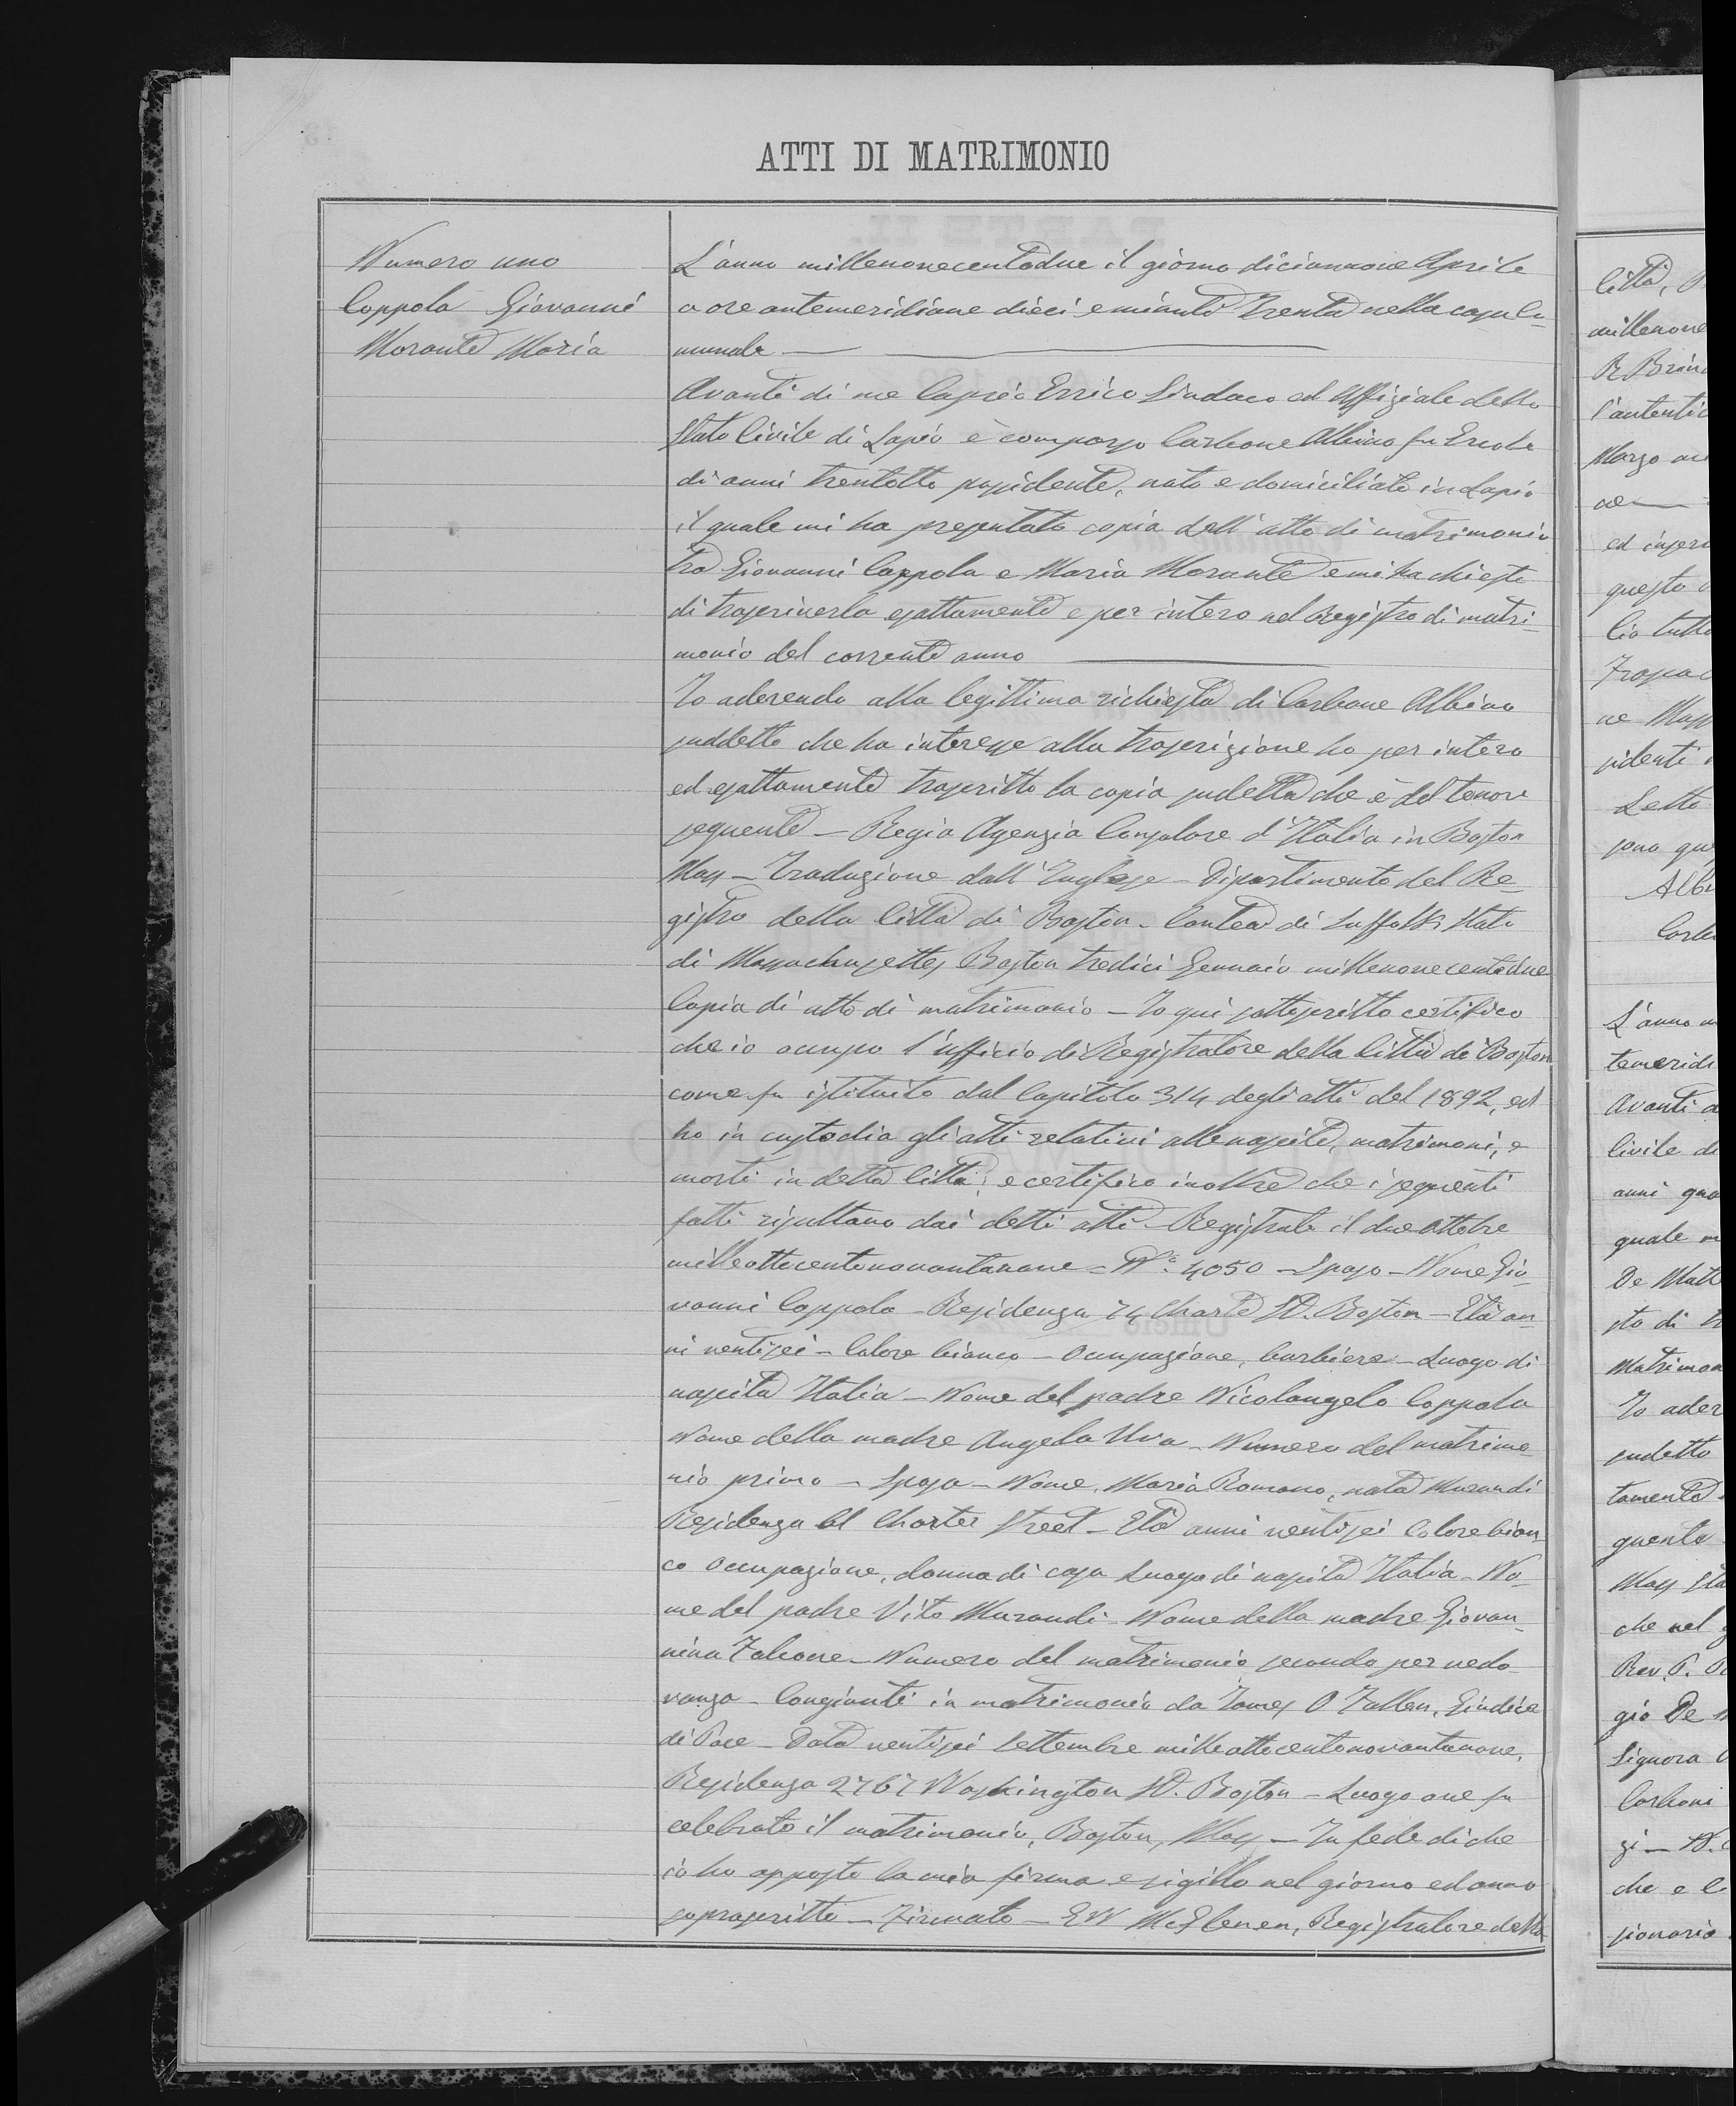 ATTI DI MATRIMONIO
Numero uno
Coppola Giovanni
Morante Maria
L'anno millenovecentodue il giorno diciannove Aprile
a ore antemeridiane dieci e minuti trenta nella casa Co-
munale
Avanti di me Caprio Errico Sindaco ed Uffiziale dello
Stato Civile di Lapio è comparso Carbone Albino fu Ercole
di anni trentotto possidente, nato e domiciliato in Lapio
il quale mi ha presentato copia dell'atto di matrimonio
tra Giovanni Coppola e Maria Morante e mi ha chiesto
di trascriverla esattamente e per intero nel Registro di matri-
monio del corrente anno
Io aderendo alla legittima richiesta di Carbone Albino
suddetto che ha interesse alla trascrizione ho per intero
ed esattamente trascritto la copia sudetta che è del tenore
seguente - Regia Agenzia Consolare d'Italia in Boston
Mass - Traduzione dall'Inglese - Dipartimento del Re-
gistro della Città di Boston - Contea di Suffolk Stato
di Massachusettes Boston tredici Gennaio millenovecentodue
Copia di atto di matrimonio - Io qui sottoscritto certifico
che io occupo l'ufficio di Registratore della Città di Boston
come fu istituito dal Capitolo 314 degli atti del 1892, ed
ho in custodia gli atti relativi alle nascite, matrimoni, e
morti in detta Città; e certifico inoltre che i seguenti
fatti risultano dai detti atti - Registrato il due Ottobre
milleottocentonovantanove - N.° 4050 - Sposo - Nome Gio-
vanni Coppola - Residenza 74 Charte St. Boston - Età an-
ni ventisei - Colore bianco - Occupazione, barbiere - Luogo di
nascita Italia - Nome del padre Nicolangelo Coppola
Nome della madre Angela Uva - Numero del matrimo-
nio primo - Sposa - Nome, Maria Romano, nata Murandi
Residenza 61 Charter Street - Età anni ventisei Colore bian-
co Occupazione, donna di casa Luogo di nascita Italia - No-
me del padre Vito Murandi - Nome della madre Giovan-
nina Falcone - Numero del matrimonio secondo per vedo-
vanza - Congiunti in matrimonio da James O Fallen, Giudice
di Pace - Data ventisei Settembre milleottocentonovantanove,
Residenza 2767 Washington St. Boston - Luogo ove fu
celebrato il matrimonio, Boston, Mass - In fede di che
io ho apposto la mia firma e sigillo nel giorno ed anno
soprascritto - Firmato - E W McGlenen, Registratore della
Città,
millenove
l'autentic
Marzo
ed inser
questo
lio tutto
sidenti
Letto
sono que
L'anno m
temeridi
Avanti a
Civile di
anni qua
quale m
De Matt
sto di tr
Matrimon
Io ader
sudetto
tamente
guente
Mass Sta
che nel g
Rev. P.
gio De
Signora
Carboni
zi - N.
che e
sionario